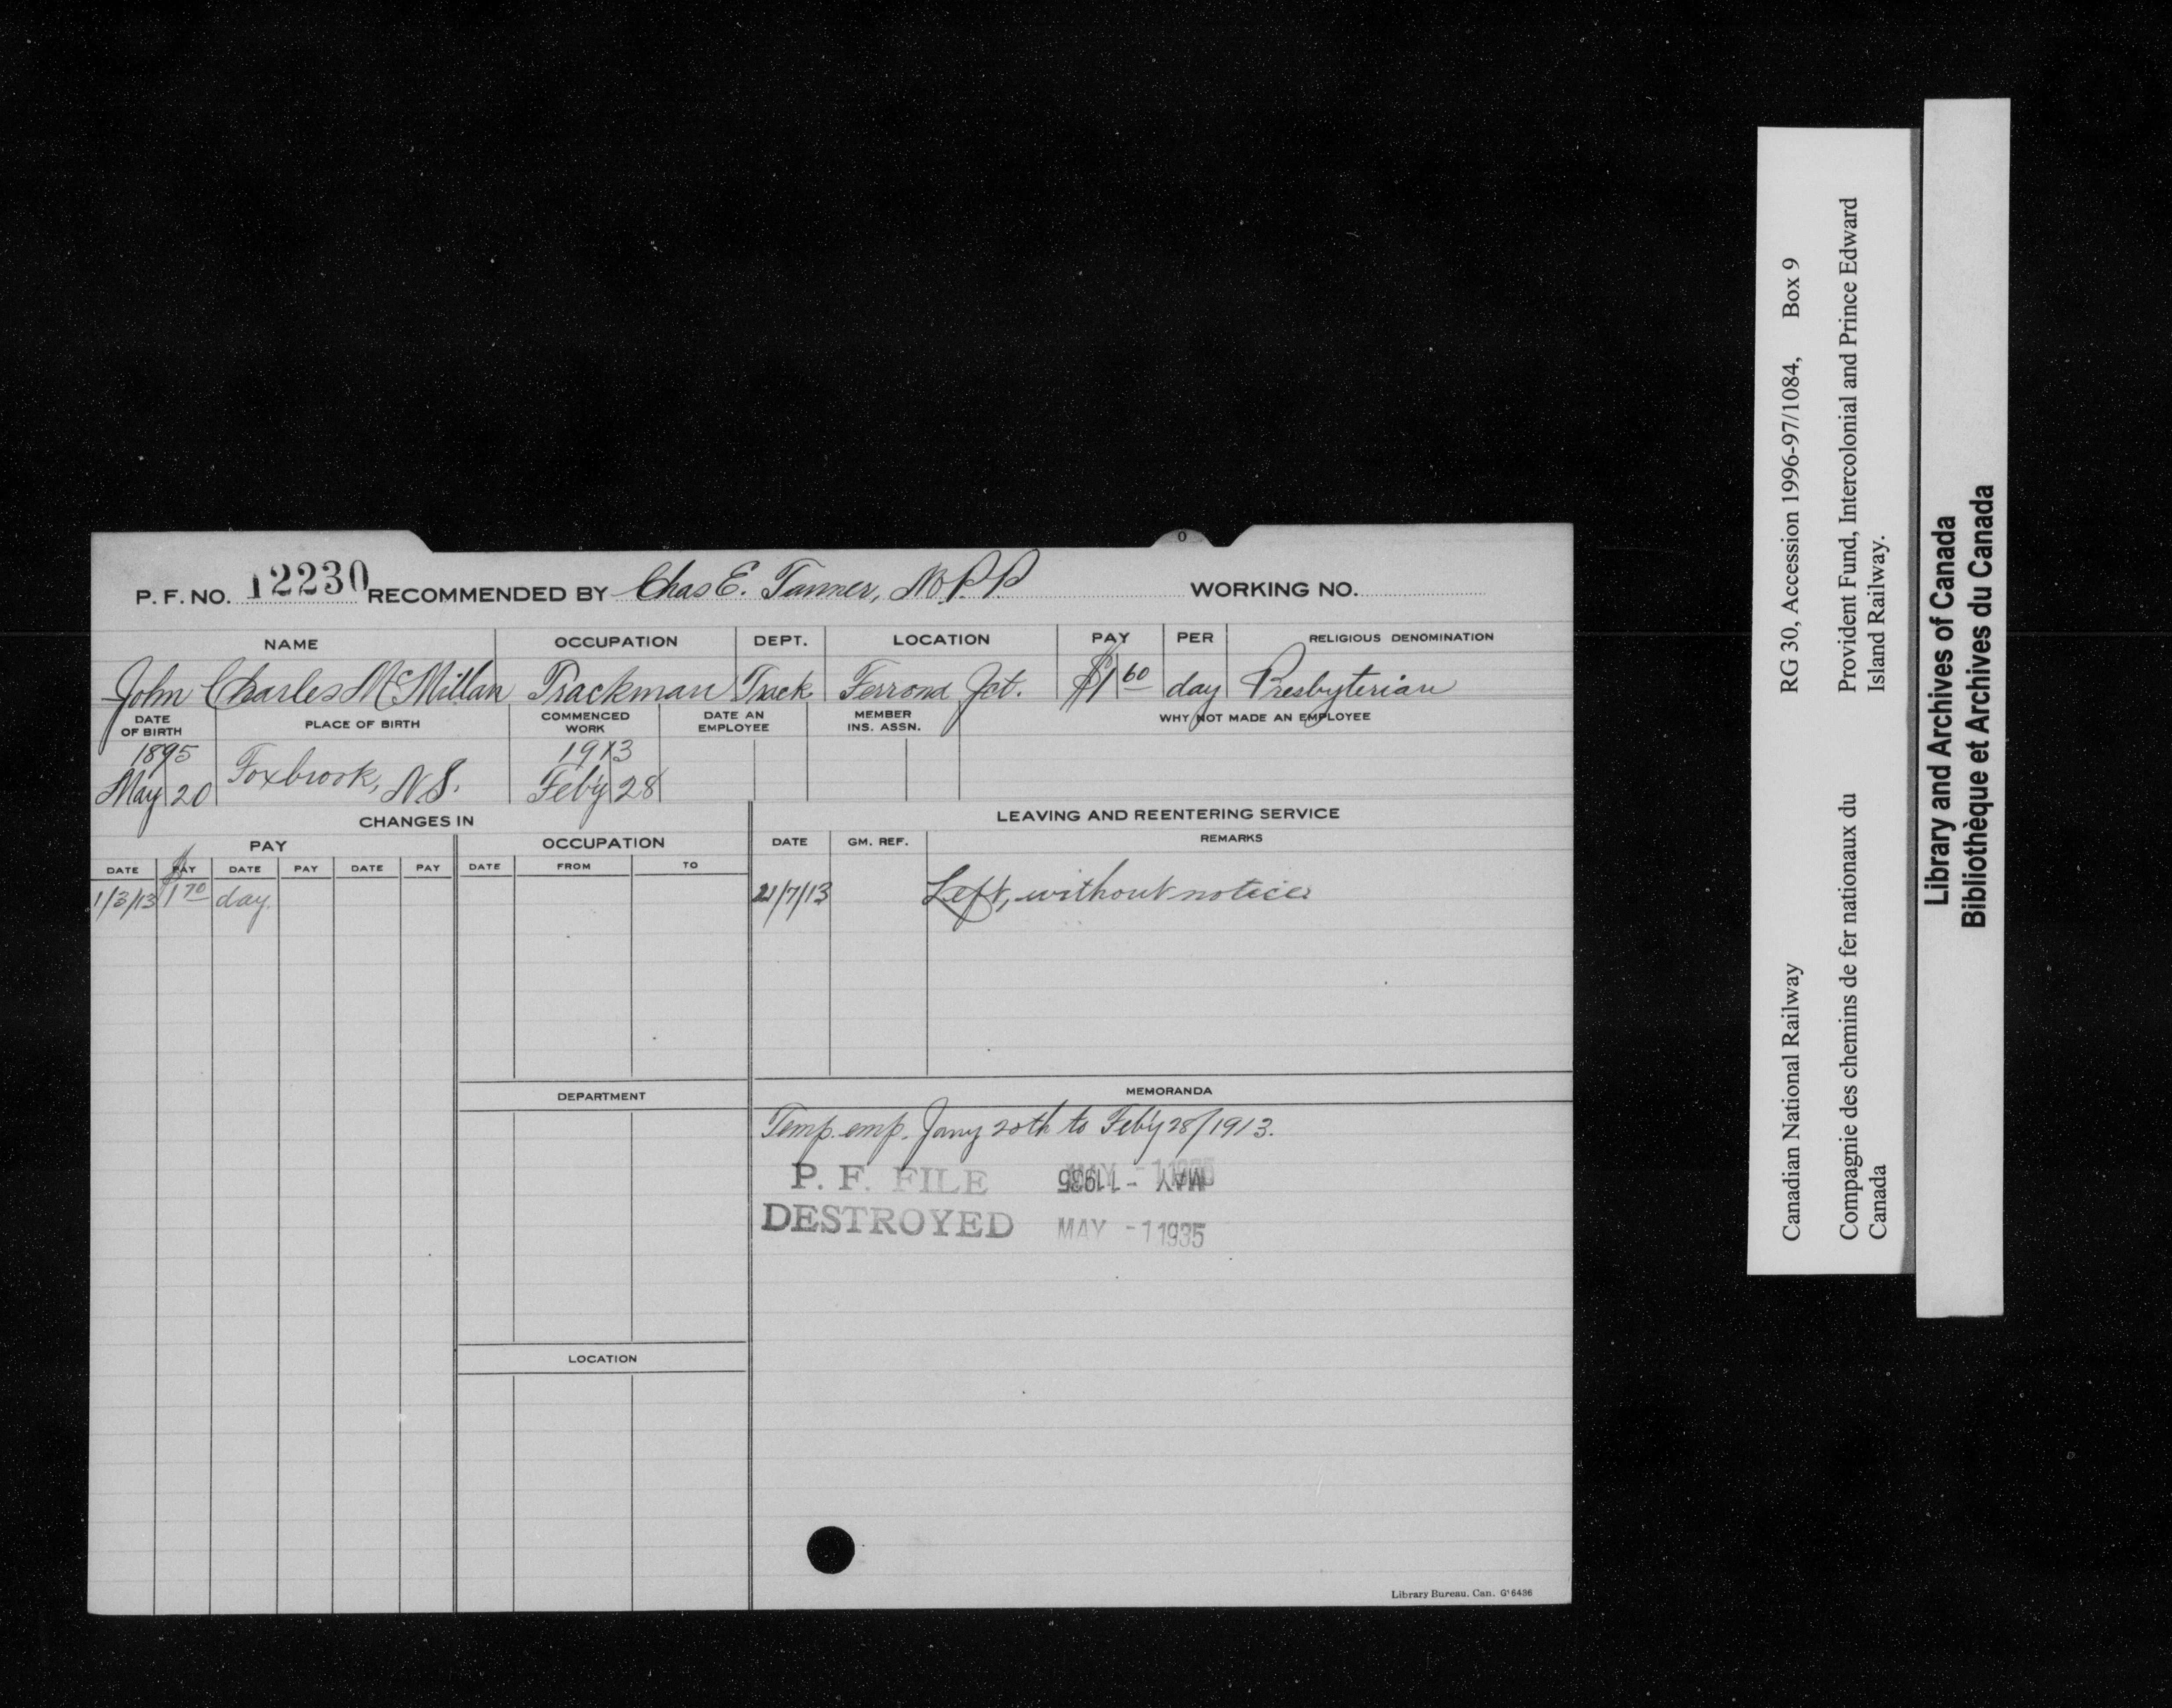 P. F. NO. 12230 RECOMMENDED BY Chas E. Tanner, M.P.P. WORKING NO.
NAME OCCUPATION DEPT. LOCATION PAY PER RELIGIOUS DENOMINATION
John Charles McMillan Trackman Track Ferrona Jct. $1 60 day Presbyterian
DATE OF BIRTH PLACE OF BIRTH COMMENCED WORK DATE AN EMPLOYEE MEMBER INS. ASSN. WHY NOT MADE AN EMPLOYEE
1895 1913
May 20 Foxbrook, N.S. Feb'y 28
CHANGES IN LEAVING AND REENTERING SERVICE
PAY OCCUPATION DATE GM. REF. REMARKS
DATE PAY DATE PAY DATE PAY DATE FROM TO
1/3/13 $1 70 day. 21/7/13 Left, without notice
DEPARTMENT MEMORANDA
Temp. emp. Jany 20th to Feb'y 28/1913.
P. F. FILE MAY - 1 1935
DESTROYED MAY - 1 1935
LOCATION
Library Bureau. Can. G16436
RG 30, Accession 1996-97/1084, Box 9
Canadian National Railway
Provident Fund, Intercolonial and Prince Edward
Island Railway.
Compagnie des chemins de fer nationaux du
Canada
Library and Archives of Canada
Bibliothèque et Archives du Canada